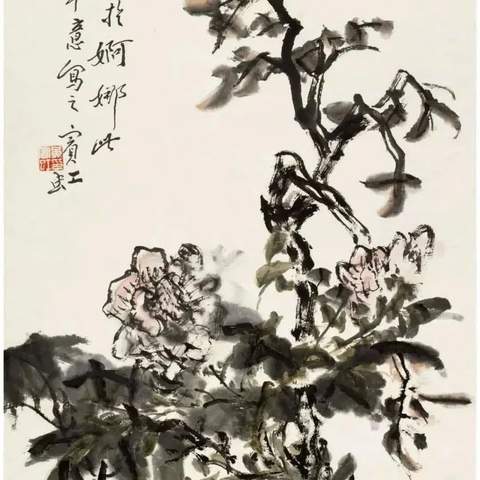 於婀娜此
意寫之賓虹